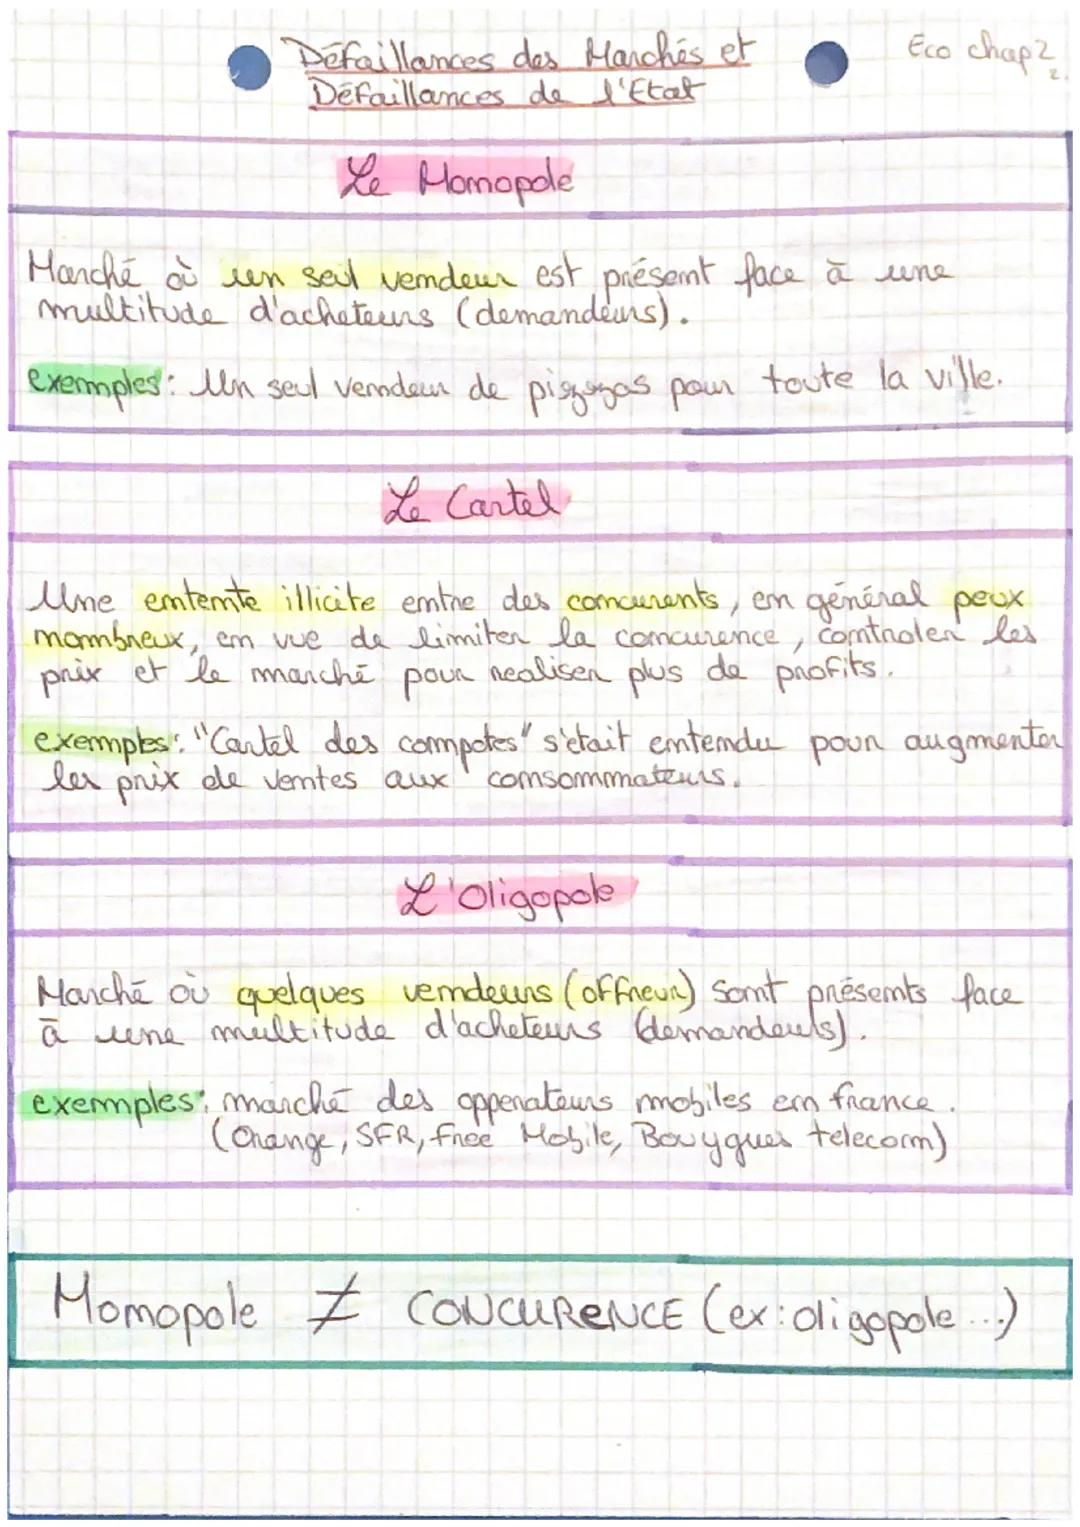 Défaillances des Marchés et
Eco chap 2
2.
Défaillances de l'Etat
Le Monopole
Marché où un seul vendeur est présent face à une
multitude d'acheteurs (demandeurs).
exemples: Un seul vendeur de pizzas pour toute la ville.
Le Cartel
Une entente illicite entre des concurents, en général peux
nombreux, en vue de limiter la concurence, controler les
prix et le marché pour realiser plus de profits.
exemples: "Cartel des compotes" s'était entendu pour augmenter
les prix de ventes aux consommateurs.
L'Oligopole
Marché où quelques vendeurs (offreur) sont présents face
à une multitude d'acheteurs (demandeurs).
exemples: marché des opperateurs mobiles en france.
(Orange, SFR, free Mobile, Bouygues telecom)
Monopole ≠ CONCURENCE (ex: oligopole...)